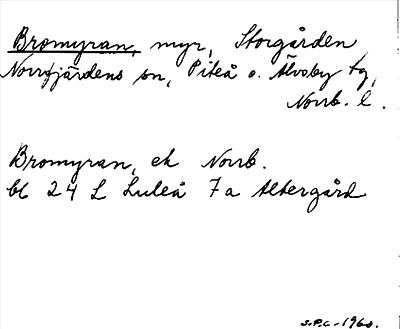 Bromyran, myr, Storgården
Norrfjärdens sn, Piteå o. Älvsby tg,
Norrb. l.
Bromyran, ek Norrb.
bl 24 L Luleå 7a Altergård
S.P.C. 1960.